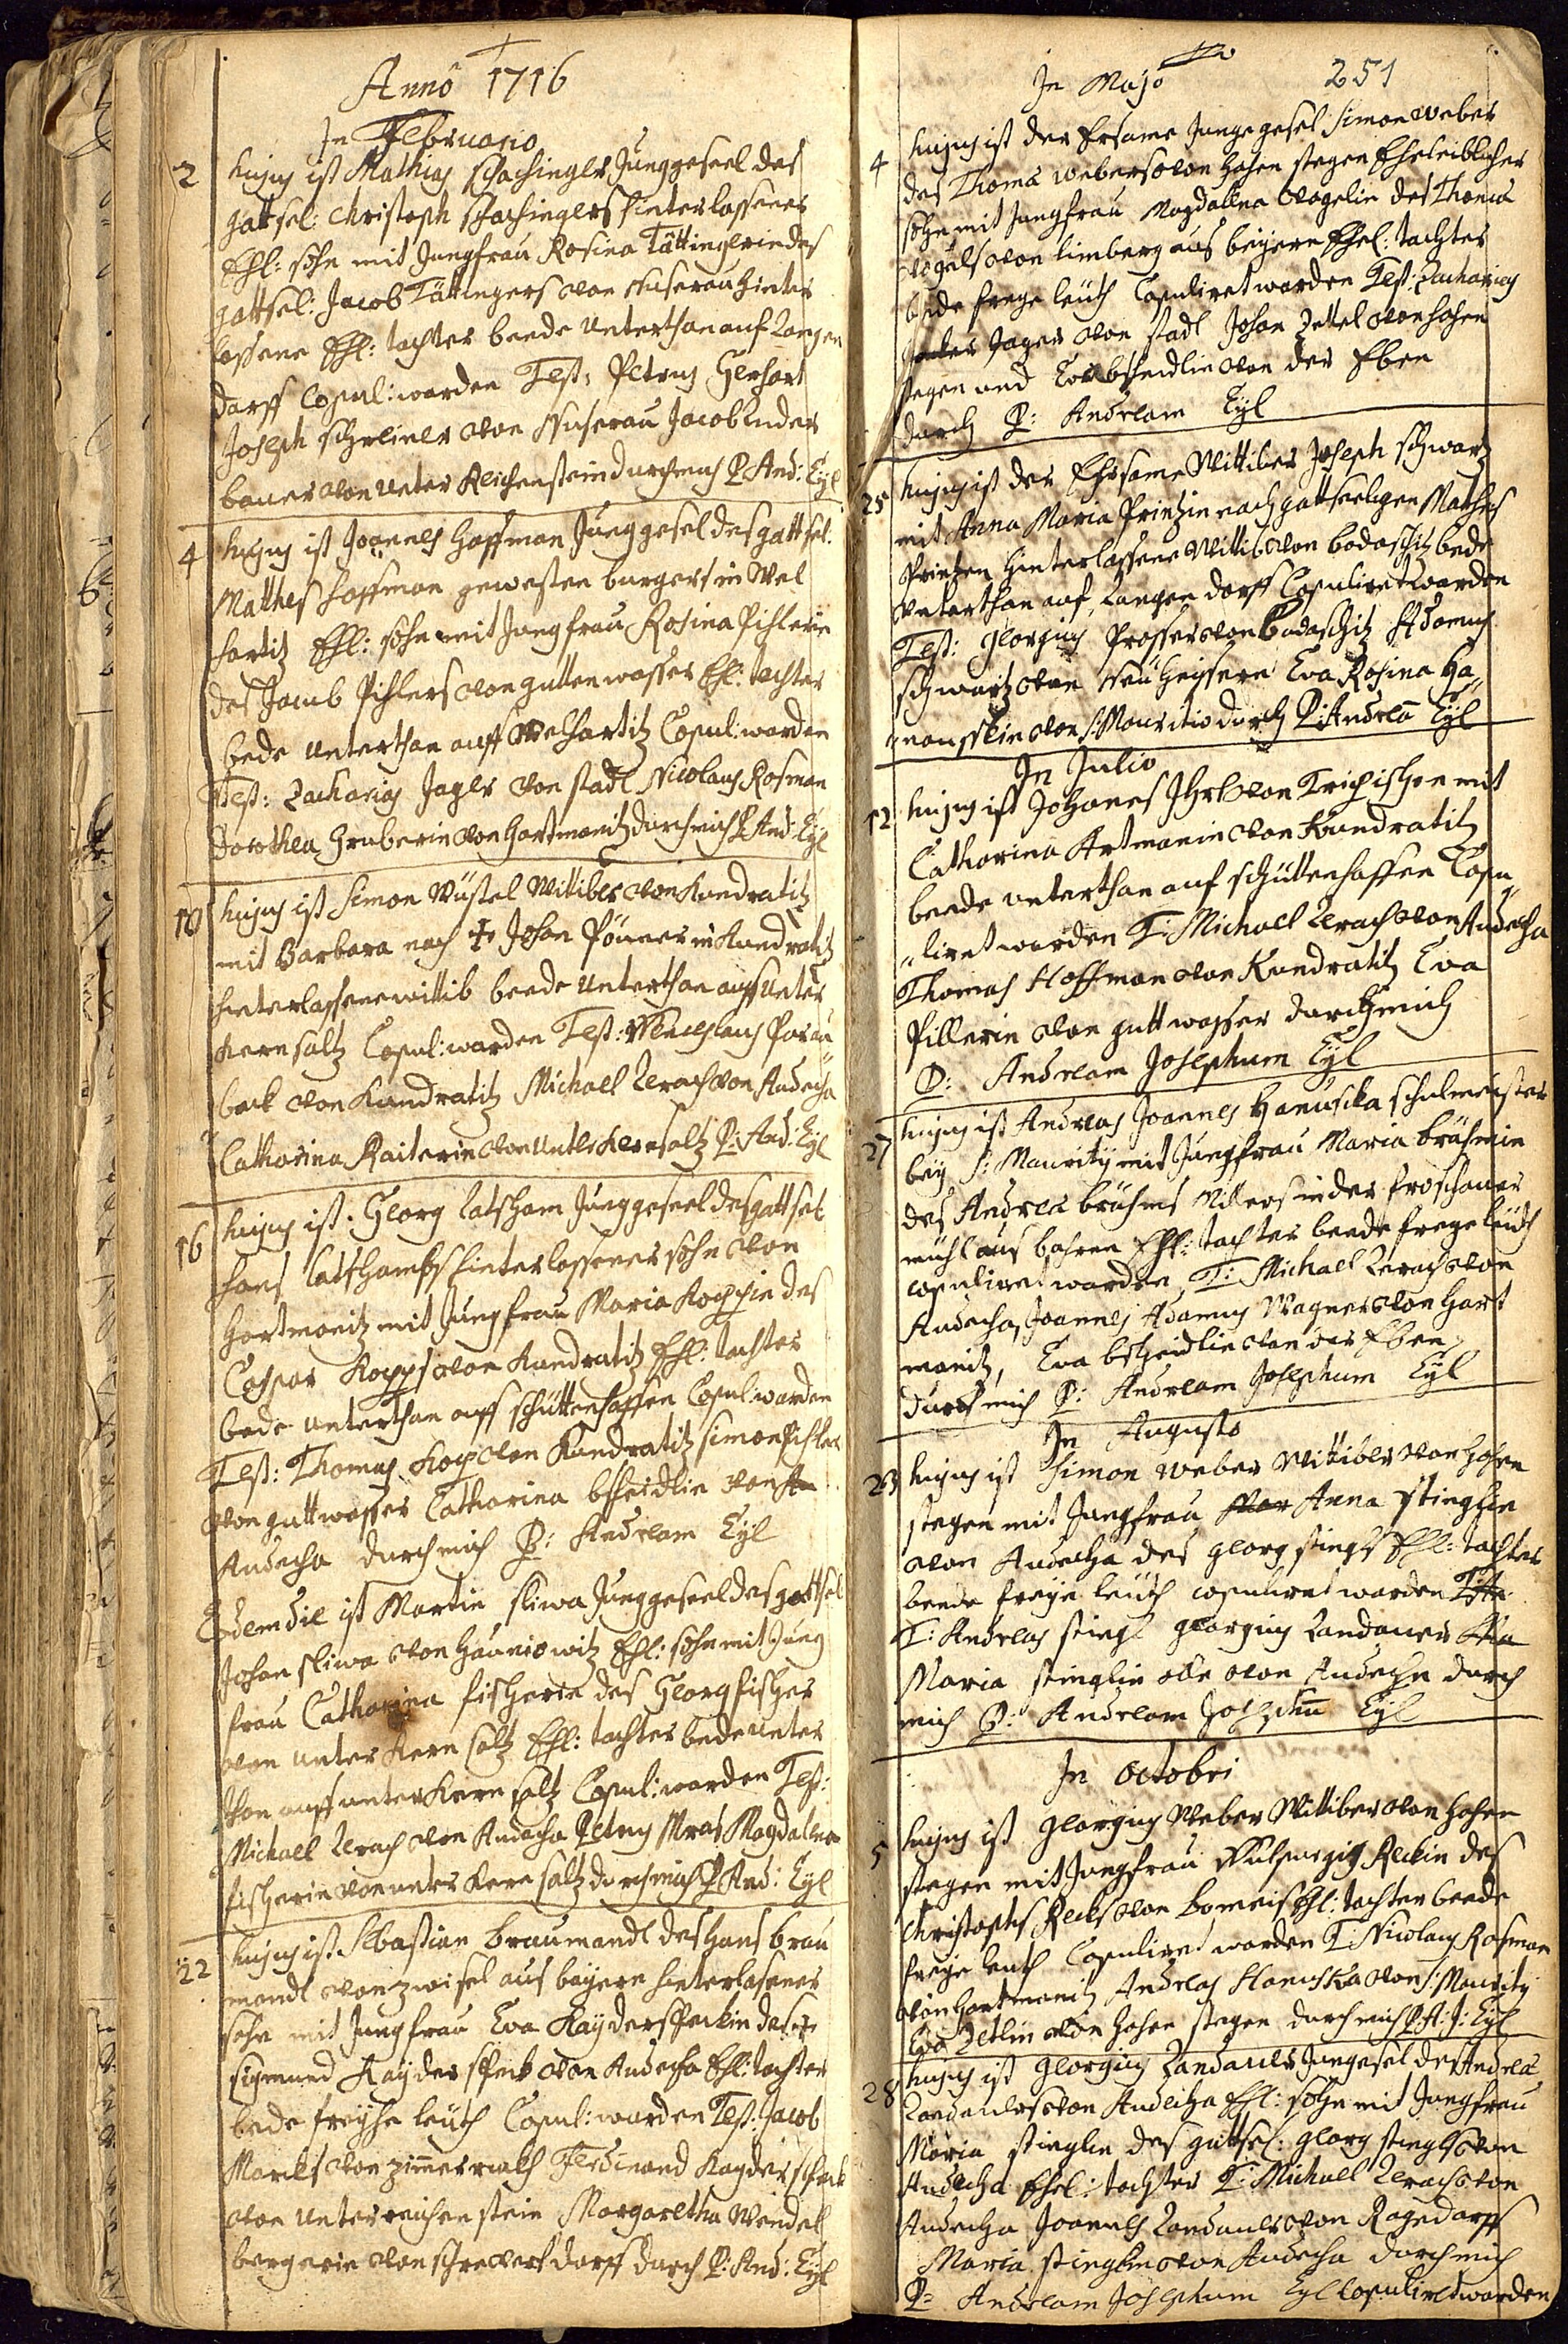 Anno 1716
In Februario
2 hujus ist Mathias schachinger Junggeseel des
gottsel: Christoph schachingers hinterlassener
Ehl: sohn mit Jungfrau Rosina Tättingerin des
gottsel: Jacob Tättingers von Nuserau hinter
lassene Ehl: tochter beede unterthan auf Langen
dorff Copul: worden Test: Petrus Gerhart
Joseph schreiner von Nuserau Jacob Lnder
bauer von unter Reichenstein durch mich P. And: Eyl
4 hujus ist Joannes Hoffman Junggesel des gottsel.
Mathes Hoffman gewesten burgers in Wel
hartitz Ehl: sohn mit Jungfrau Rosina Pihlerin
des Jacob Pihlers von guttenwasser Ehl: tochter
bede unterthan auff Welhartitz Copul: worden
Test: Zacharias Jager von stadl Nicolaus Rosman
Dorothea Gruberin von Hartmanitz durch mich P. And: Eyl
10 hujus ist Simon Wüstel Wittiber von Kundratitz
mit Barbara nach ✝ Johan Pöuner in Kundratitz
hinterlassene wittib beede unterthan auff unter
Kern saltz Copul: worden Test: Wenceslaus
beck von Kundratitz Michael Zerach von Audecha
Catharina Raiterin von unter Kernsaltz P. And: Eyl
16 hujus ist Georg latscham Junggeseel des gottsel
Hans latschambs hinterlassener sohn von
Hartmanitz mit Jungfrau Maria Koppin des
Caspar Kopps von Kundratitz Ehl: tochter
bede unterthan auff schüttenhoffen Copul: worden
Test: Thomas Kopp von Kundratitz Simon Pihler
von guttwasser Catharina bscheidlin von
Audecha durch mich P: Andream Eyl
Eodem die ist Martin sliwa Junggeseel des gottsel
Johan sliwa von Hauniowitz Ehl: sohn mit Jung
frau Catharina fischerin des Georg fischer
von unter Kern saltz Ehl: tochter bede unter
than auff unter Kern saltz Copul: worden Test:
Michael Zerach von Audecha Petrus Mras Magdalena
fischerin von unter Kern saltz durch mich P. And: Eyl
22 hujus ist Sebastian Braumandl des Hans brau
mandl von zwisel aus bayern hinterlasener
sohn mit Jungfrau Eva Kayderspeckin des ✝
sigmund Kayderspeck von Audecha Ehl: tochter
bede freyhe leuth Copul: worden Test: Jacob
Marcks von zimmer Ferdinand Kayderspeck
von unterreichenstein Margaretha Wendel
bergerin von dorff durch P. And: Eyl
251
In Majo
4 hujus ist der Ersame Junge gesel Simon weber
des Thoma webers von hohen stegen Eheleiblicher
sohn mit Jungfrau Magdalena Vogelin des Thoma
Vogels von limberg aus beyern Ehel: tochter
bede freye leuth Copuliret worden Test: Zacharias
Jager von stadl Johan Zettel von hohen
stegen und Eva bscheidlin von der Eben
durch P: Andream Eyl
25 hujus ist der Ehrsame Wittiber Joseph schwartz
mit Anna Maria Printzin nach gottseeligen Mathes
Printzen hinterlassene Wittib von bodaschitz bede
unterthan auf Langendorff Copuliret worden
Test: Georgius Prosser von Bodaschitz Adamus
schwartz von Neu heusern Eva Rosina Ha„
„nouskin von S: Mauritio durch P: Andrea Eyl
In Julio
12 hujus ist Johanes Ihrl von Trichischen mit
Catharina Artmanin von Kundratitz
beede unterthan auf schüttenhoffen Copu„
„liret worden T: Michael Zerach von Audecha
Thomas Hoffman von Kundratitz Eva
Pillerin von guttwasser durch mich
P: Andream Josephum Eyl
27 hujus ist Andreas Joannes Hanuscka schulmeister
bey S: Maurity mit Jungfrau Maria brähmin
des Andrea brähms Millers in der froschauer
mühl aus bahren Ehl: tochter beede freye leuth
copuliret worden, T: Michael Zerach von
Audecha, Joannes Adamus Wagner von Hart
manitz, Eva bscheidlin von der Eben
durch mich P: Andream Josephum Eyl
In Augusto
23 hujus ist Simon weber Wittiber von hohen
stegen mit Jungfrau Mar Anna stinglin
von Audecha des georg stingls Ehl: tochter
beede freye leuth copuliret worden
T: Andreas stingl georgius Landauer
Maria stinglin alle von Audecha durch
mich P: Andream Josephum Eyl
In Octobri
5 hujus ist georgius Weber Wittiber von hohen
stegen mit Jungfrau Wulpurgis Reckin des
Christophs Recks von Ehl: tochter beede
freye leuth Copuliret worden T. Nicolaus Rosman
von hartmanitz Andreas Hanuska von S: Maurity
Eva Zetlin von hohen stegen durch mich P. A: J: Eyl
28 hujus ist georgius Landauer Jungesel des Andrea
Landauers von Audecha Ehl: sohn mit Jungfrau
Maria stinglin des gottsel: georg stingls von
Audecha Ehel: tochter T: Michael Zerach von
Audecha Joannes Landauer von Rogedorff
Maria stinglin von Audecha durch mich
P: Andream Josephum Eyl Copuliret worden